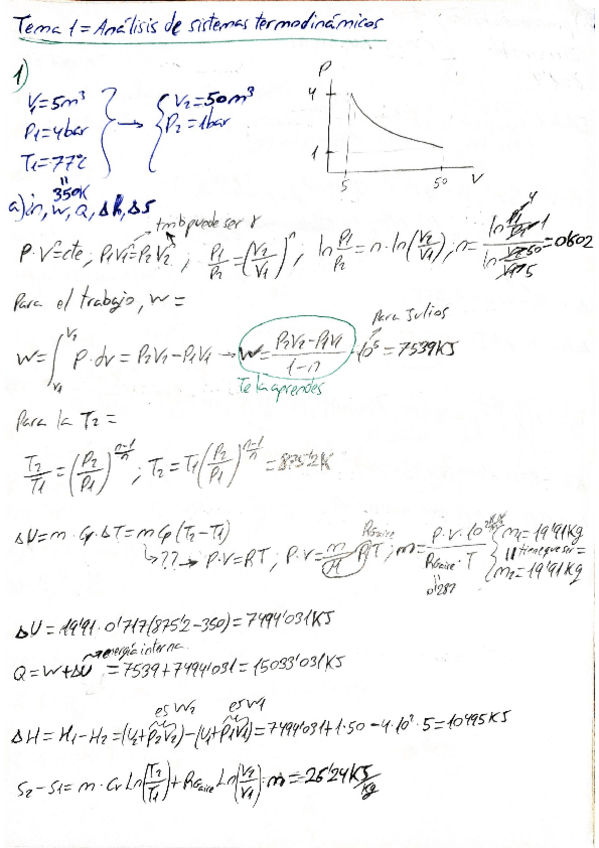 Tema 1 = Análisis de sistemas termodinámicos
1)
V1=5m³
P1=4bar
T1=77ºC
"
350K
→
V2=50m³
P2=1bar
P
4
1
5
50
V
a) n, W, Q, Δh, ΔS
tmb puede ser γ
P·Vⁿ=cte ; P1V1ⁿ=P2V2ⁿ ; P1/P2=(V2/V1)ⁿ ; ln P1/P2 = n·ln(V2/V1), n= ln 4/1 / ln 50/5 =0'602
Para el trabajo, W=
para Julios
W=∫ P·dv = P2V2-P1V1 → W= P2V2-P1V1 / 1-n · 10⁵ = 7539KJ
Te la aprendes
Para la T2=
T2/T1=(P2/P1)^(n-1/n) ; T2=T1(P2/P1)^(n-1/n) =875'2K
ΔU=m·Cv·ΔT=m Cp(T2-T1)
↳??→ P·V=RT ; P·V= m/M RT ; m= P·V·10² / RGaire·T
RGaire
0'287
m1=19'91Kg
|| tiene que ser =
m2=19'91Kg
ΔU=19'91·0'717(875'2-350)=7494'031KJ
→energía interna
Q=W+ΔU =7539+7494'031=15033'031KJ
es W2 es W1
ΔH=H1-H2=(U2+P2V2)-(U1+P1V1)=7494'031+1·50-4·10²·5=10495KJ
S2-S1=m·Cv Ln(T2/T1)+RGaire Ln(V2/V1)·m=26'24 KJ/Kg